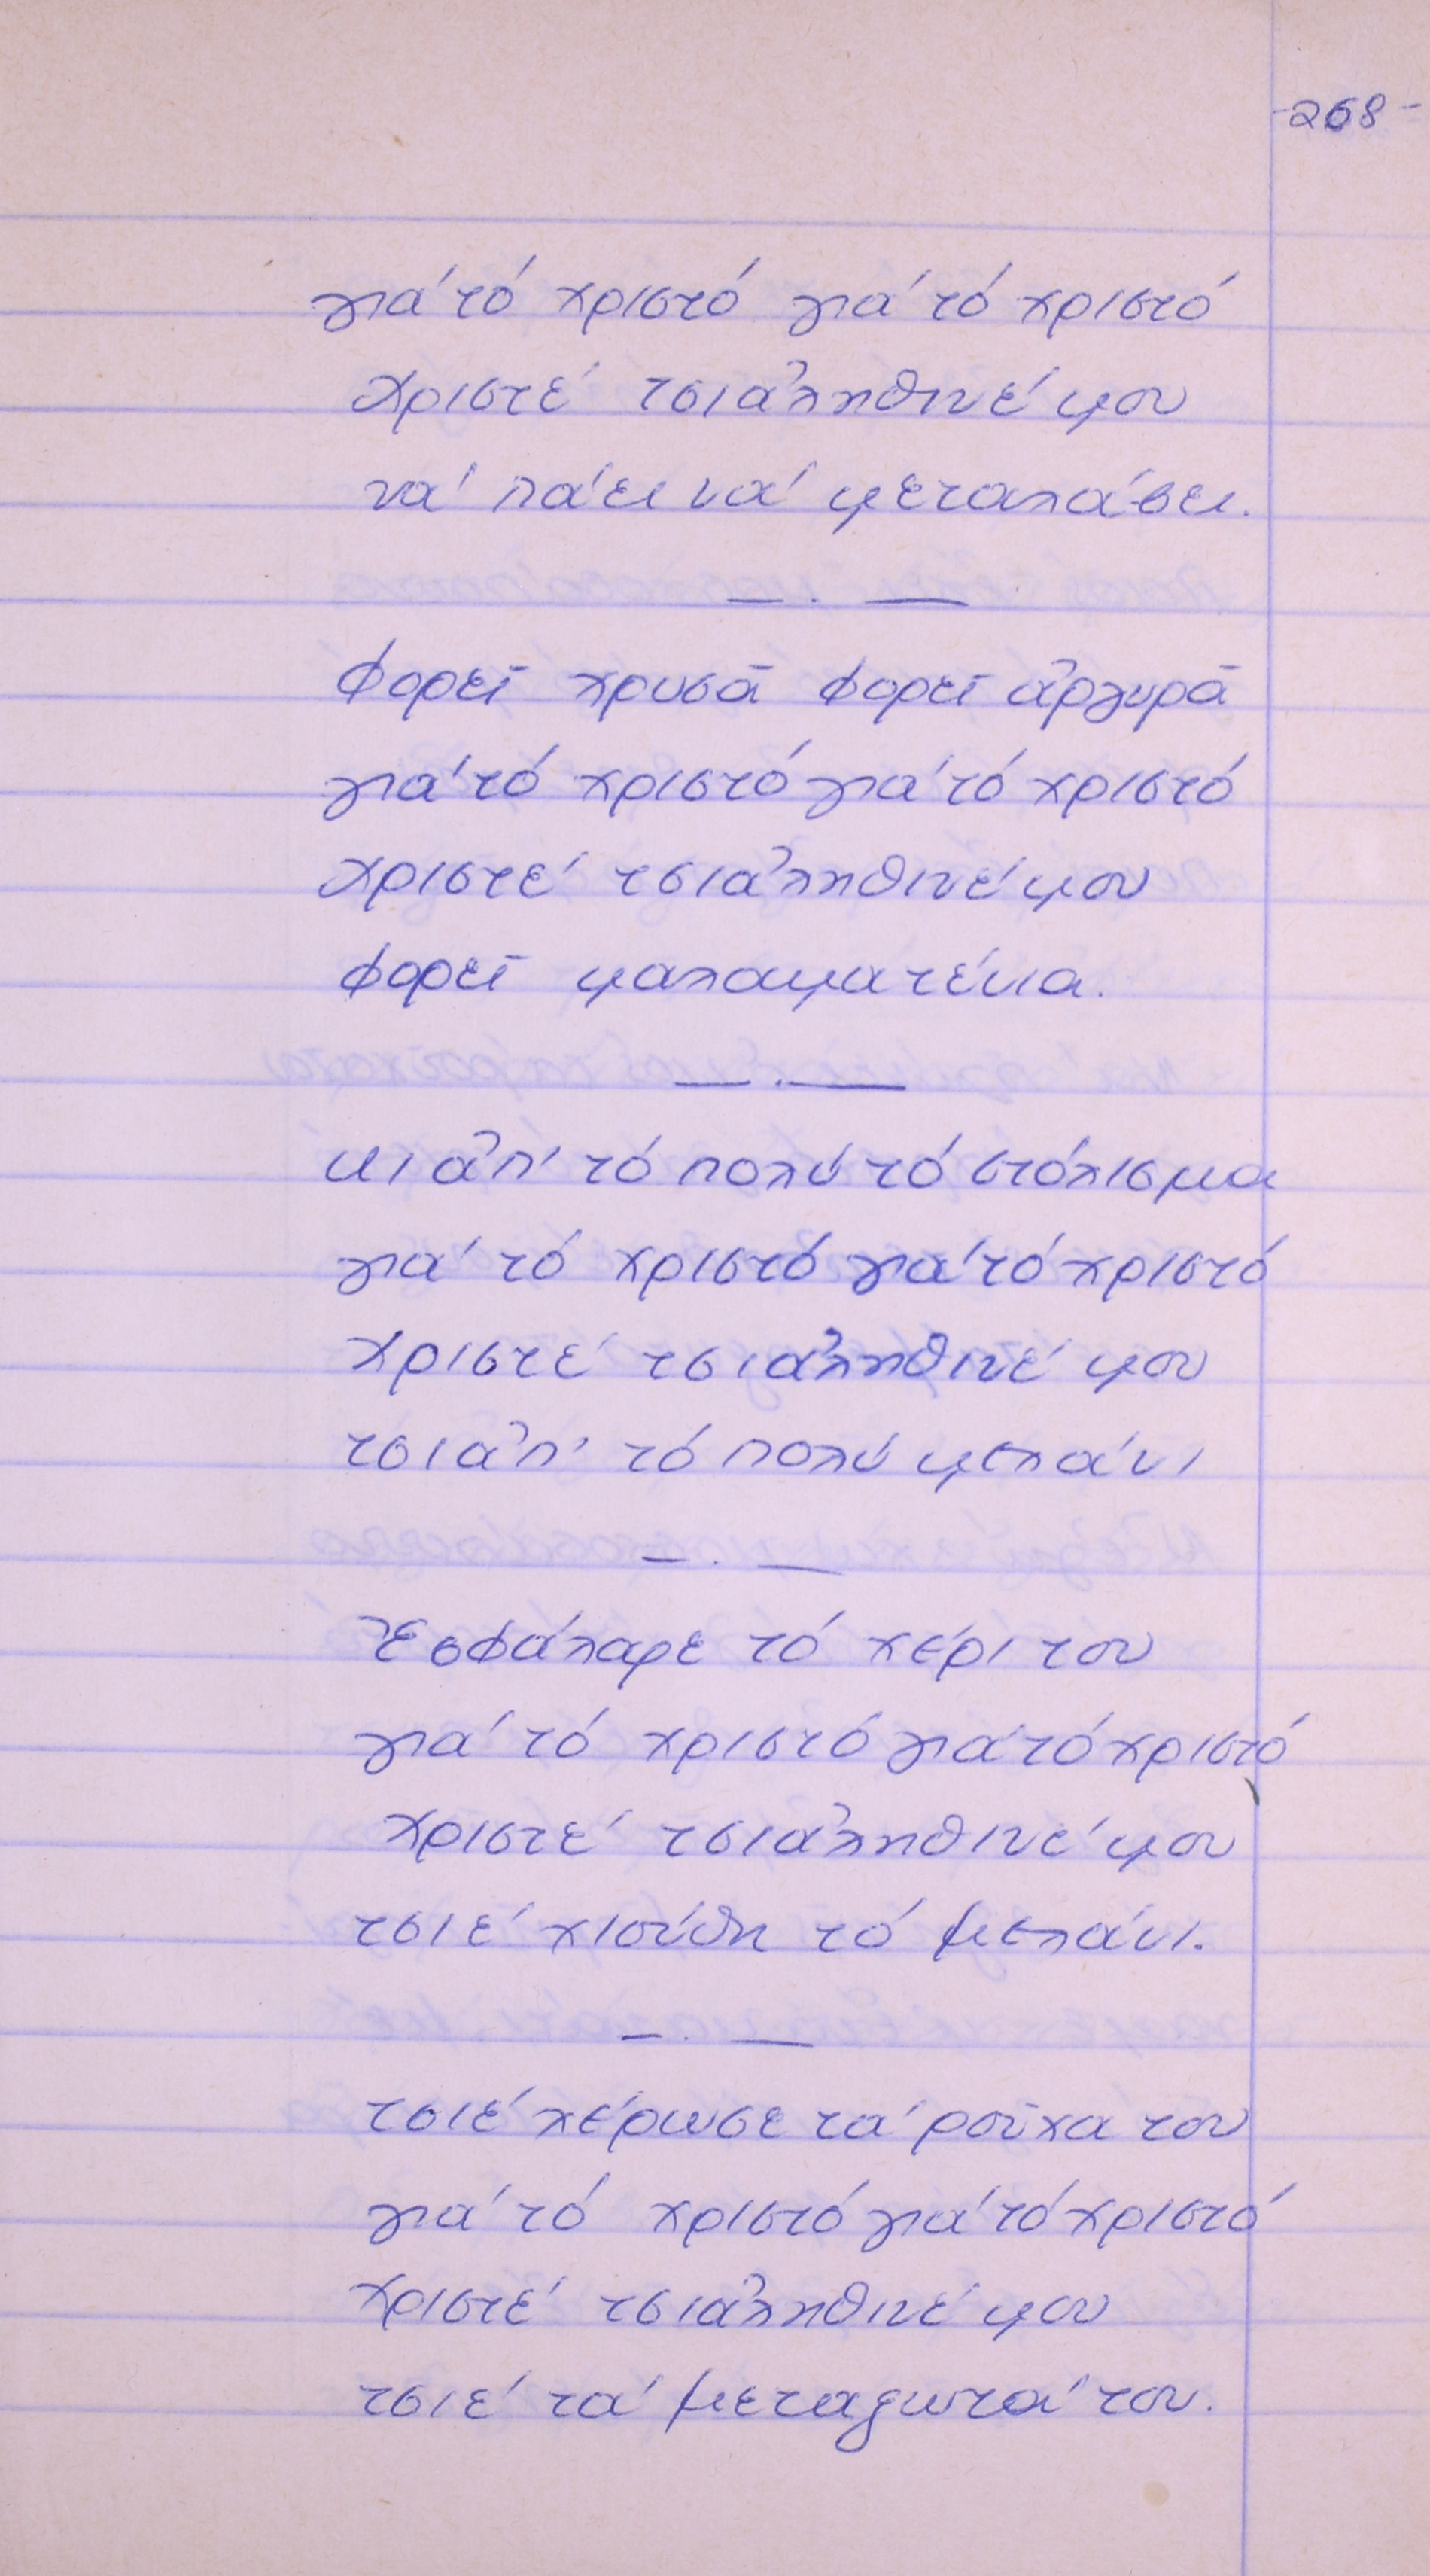 -268-
γιά τό χριστό γιά τό χριστό
χριστέ τσιἀληθινέ μου
νά πάει νά μεταλάβει.
— . —
Φορεῖ χρυσᾶ φορεῖ ἀργυρᾶ
γιά τό χριστό γιά τό χριστό
χριστέ τσιἀληθινέ μου
φορεῖ μαλαματένια.
— . —
κι ἀπ' τό πολύ τό στόλισμα
γιά τό χριστό γιά τό χριστό
χριστέ τσιἀληθινέ μου
τσι ἀπ' τό πολύ μελάνι
— . —
Ἐσφάλαρε τό χέρι του
γιά τό χριστό γιά τό χριστό
χριστέ τσιἀληθινέ μου
τσιέ χιούθη τό μελάνι.
— . —
τσιέ λέρωσε τά ροῦχα του
γιά τό χριστό γιά τό χριστό
χριστέ τσιἀληθινέ μου
τσιέ τά μεταξωτά του.